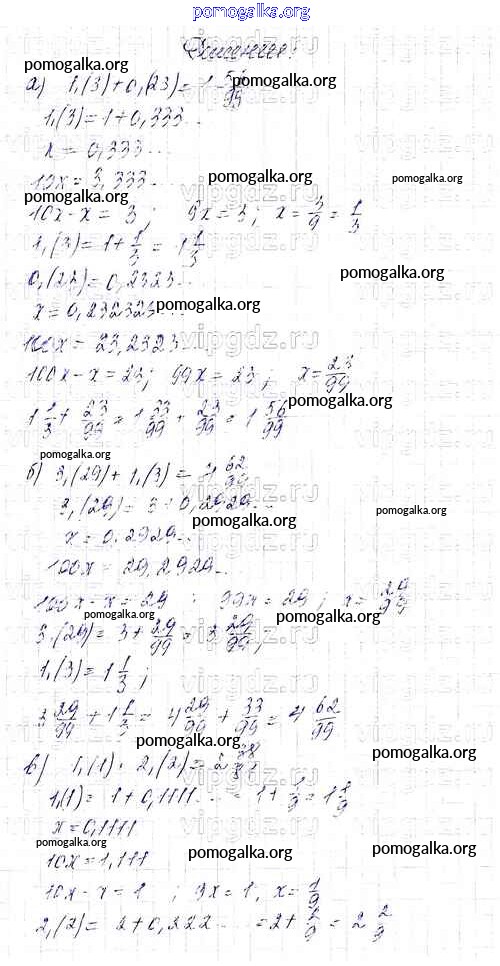 pomogalka.org
Решение:
pomogalka.org pomogalka.org
а) 1,(3)+0,(23)=1 56/99
1,(3)=1+0,333...
x=0,333...
pomogalka.org pomogalka.org
10x=3,333...
pomogalka.org
10x-x=3; 9x=3; x=3/9=1/3
1,(3)=1+1/3=1 1/3
pomogalka.org
0,(23)=0,2323...
x=0,232323...
pomogalka.org
100x=23,2323...
vipgdz.ru
100x-x=23; 99x=23; x=23/99
pomogalka.org
1 1/3+23/99=1 33/99+23/99=1 56/99
pomogalka.org
б) 3,(29)+1,(3)=4 62/99
vipgdz.ru
3,(29)=3+0,2929...
pomogalka.org pomogalka.org
x=0,2929...
100x=29,2929...
100x-x=29; 99x=29; x=29/99
pomogalka.org pomogalka.org
3,(29)=3+29/99=3 29/99;
1,(3)=1 1/3;
3 29/99+1 1/3=4 29/99+33/99=4 62/99
pomogalka.org pomogalka.org
в) 1,(1)·2,(2)=2 38/81
1,(1)=1+0,1111...=1+1/9=1 1/9
x=0,1111
vipgdz.ru
pomogalka.org pomogalka.org pomogalka.org
10x=1,111
10x-x=1; 9x=1, x=1/9
pomogalka.org
2,(2)=2+0,222...=2+2/9=2 2/9